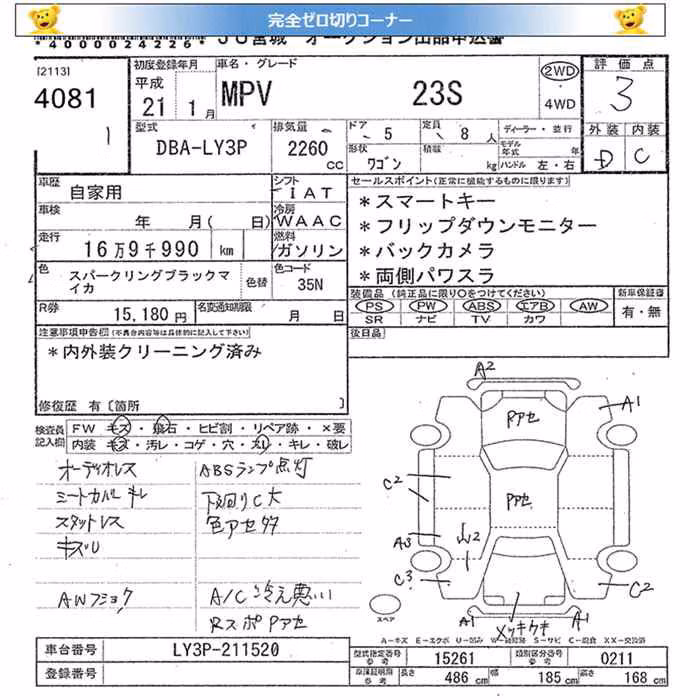 完全ゼロ切りコーナー
*4000024226* JU宮城 オークション出品申込書
[2113]
4081
初度登録年月
平成
21 1月
車名・グレード
MPV 23S
2WD
4WD
評価点
3
外装 内装
D C
型式
DBA-LY3P
排気量
2260 CC
ドア 5
定員 8人
形状 ワゴン
積載 kg
ディーラー・並行
モデル年式 年
ハンドル 左・右
車歴 自家用
シフト IAT
車検 年 月( 日)
冷房 WAAC
走行 16万9千990 km
燃料 ガソリン
色 スパークリングブラックマイカ
色替
色コード 35N
R券 15,180円
名変通知期限 月 日
セールスポイント(正常に機能するものに限ります)
*スマートキー
*フリップダウンモニター
*バックカメラ
*両側パワスラ
装備品(純正品に限り○をつけてください)
PS PW ABS エアB AW
SR ナビ TV カワ
新車保証書
有・無
後日品
注意事項申告欄(不具合内容等は具体的に記入して下さい)
*内外装クリーニング済み
修復歴 有[箇所 ]
検査員記入欄
FW キズ・飛石・ヒビ割・リペア跡・×要
内装 キズ・汚レ・コゲ・穴・スレ・キレ・破レ
オーディオレス ABSランプ点灯
シートカバー キレ 下廻りC大
スタットレス 色アセタタ
キズU
AWフショク A/C冷え悪い
RスポPアセ
A2
A1
Pアセ
C2
Pアセ
A3
山2
C3
C2
A1
メッキウキ
A1
スペア
A-キズ E-エクボ U-凹み W-補修跡 S-サビ C-腐食 XX-交換済
車台番号 LY3P-211520
登録番号
型式指定番号 参考 15261
類別区分番号 参考 0211
車検証明用 参考 長さ 486 cm 幅 185 cm 高さ 168 cm